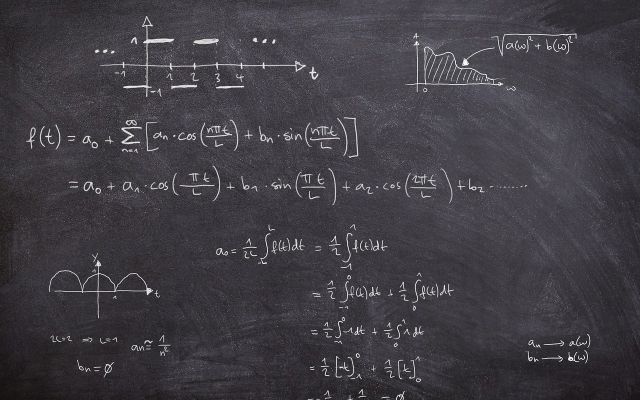 1
... ...
-1 1 2 3 4 t
-1
√(a(ω)² + b(ω)²)
0 ω
f(t) = a₀ + ∞∑n=1 [aₙ · cos(nπt/L) + bₙ · sin(nπt/L)]
= a₀ + a₁ · cos(πt/L) + b₁ · sin(πt/L) + a₂ · cos(2πt/L) + b₂ ........
a₀ = 1/2L ∫-L^L f(t)dt = 1/2 ∫-1^1 f(t)dt
= 1/2 ∫-1^0 f(t)dt + 1/2 ∫0^1 f(t)dt
y
1 t
= 1/2 ∫-1^0 -1dt + 1/2 ∫0^1 1dt
2L=2 ⇒ L=1 aₙ ≈ 1/n²
bₙ = ∅
aₙ → a(ω)
bₙ → b(ω)
= 1/2 [-t]-1^0 + 1/2 [t]0^1